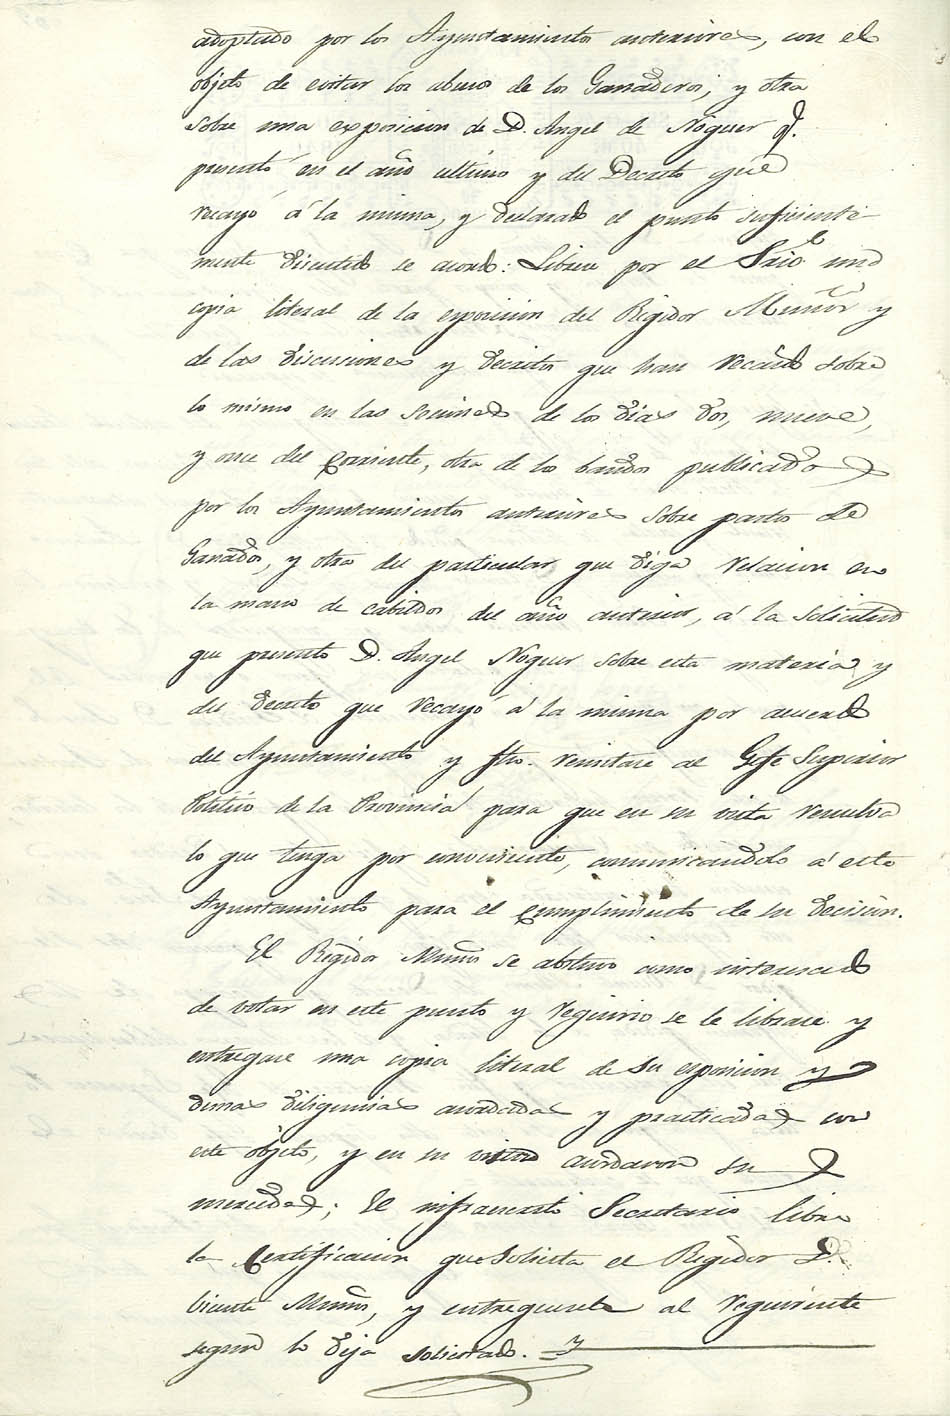 adoptado por los Ayuntamientos anteriores, con el
objeto de evitar los abusos de los Ganaderos; y otra
sobre una exposicion de D. Angel de Noguer q.
presentó en el año ultimo y del Decreto que
recayó á la misma, y declarado el punto suficiente-
mente discutido se acordó: Librese por el Srio. una
copia literal de la exposicion del Regidor Muñoz y
de las discusiones y decretos que han recaido sobre
lo mismo en las sesiones de los dias dos, nueve,
y once del corriente, otra de los bandos publicados
por los Ayuntamientos anteriores sobre pastos de
Ganados, y otra del particular que diga relacion en
la mano de cabildos del año anterior, á la solicitud
que presentó D. Angel Noguer sobre esta materia y
del Decreto que recayó á la misma por acuerdo
del Ayuntamiento y fho. remitase al Gefe Superior
Politico de la Provincia para que en su vista resuelva
lo que tenga por conveniente, comunicandolo á este
Ayuntamiento para el cumplimiento de su decision.
El Regidor Muñoz se abstuvo como interesado
de votar en este punto y requirio se le librase y
entregase una copia literal de su exposicion y
demas diligencias acordadas y practicadas con
este objeto, y en su vista acordaron sus
mercedes; El infraescrito Secretario libre
la Certificacion que solicita el Regidor D.
Vicente Muñoz, y entreguesele al requirente
segun lo deja solicitado.